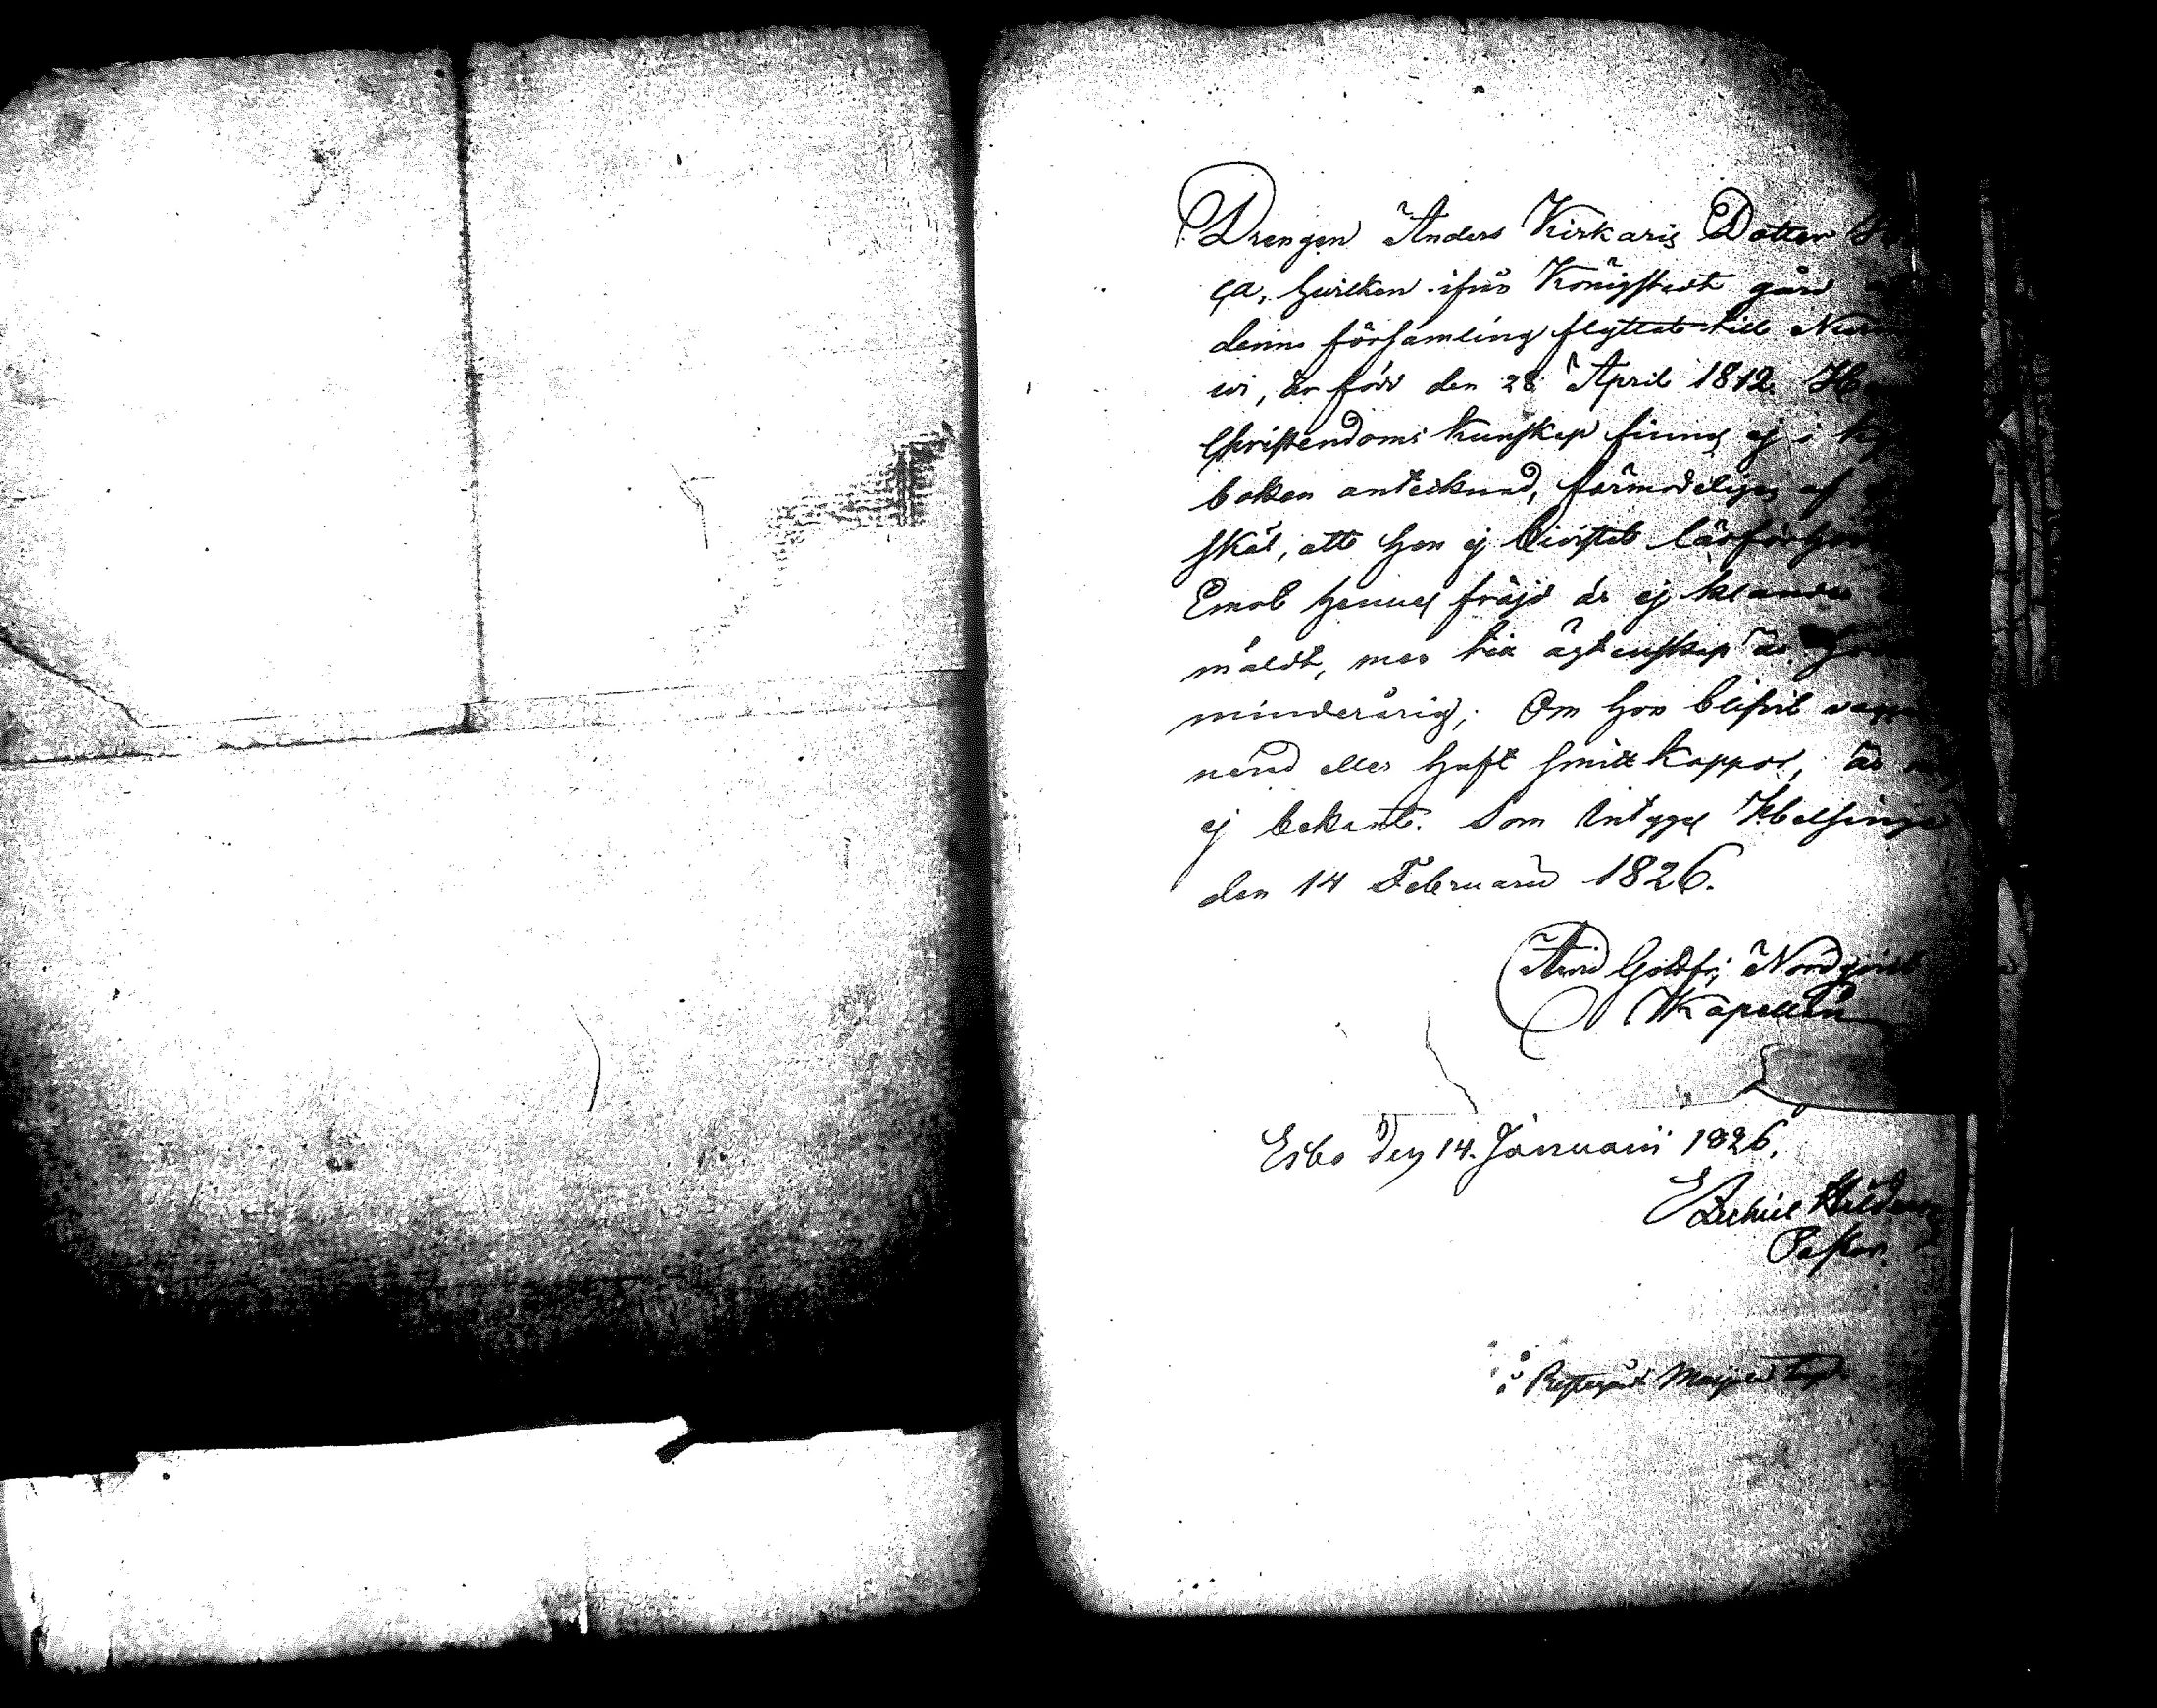 Drengen Anders Kirkaris Dotter
ca, hvilken ifrån Königstedt gård
denna församling flyttat till Nur
wi, är född den 28 April 1812. He
Christendoms kunskap finnes ej i
boken antecknad, förmodeligen af
skäl, att hon ej bivistat läsförhör
Emot hennes fräjd är ej klander
mäldt, men till ägtenskap är
minderårig; Om hon blifvit vacci
nerad eller haft smittkoppor, är
ej bekant. Som intygas Helsinge
den 14 Februarii 1826.
Arvid Gottfr: Nordqvist
Kapellan
Esbo den 14. Januarii 1826.
Pastor